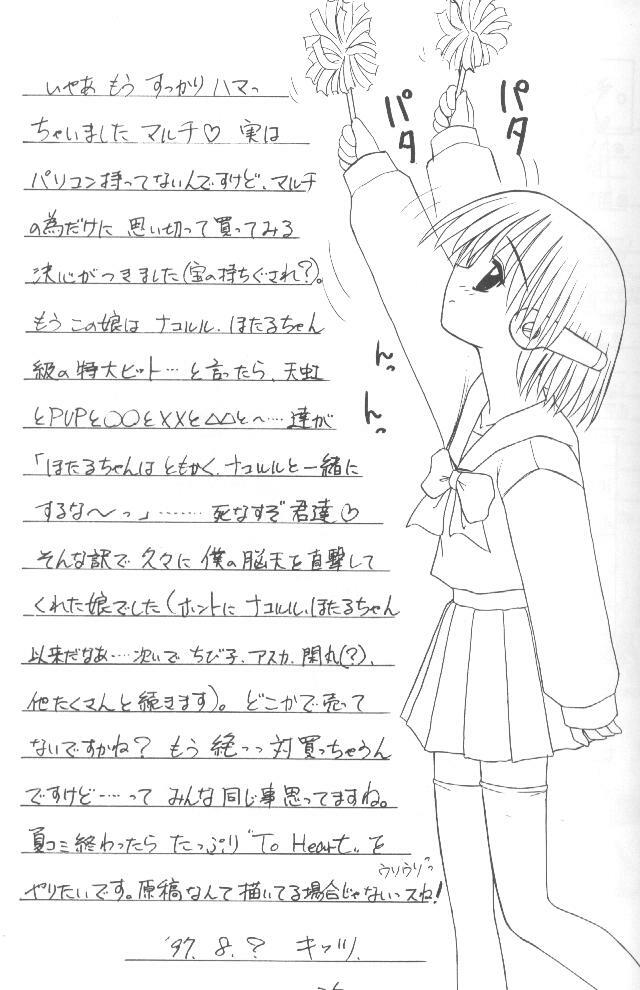 いやあ もう すっかり ハマっ
ちゃいました マルチ♡ 実は
パソコン持ってないんですけど、マルチ
の為だけに 思い切って買ってみる
決心がつきました(宝の持ちぐされ?)。
もう この娘は ナコルル、ほたるちゃん
級の特大ヒット…と言ったら、天虹
とPUPと○○と××と△△と〜……達が
「ほたるちゃんは ともかく、ナコルルと一緒に
するな〜っ」……… 死なすぞ 君達♡
そんな訳で 久々に 僕の脳天を直撃して
くれた娘でした(ホントに ナコルル、ほたるちゃん
以来だなあ……次いで ちび子、アスカ、閑丸(?)、
他たくさんと続きます)。どこかで売って
ないですかね? もう 絶っっ対買っちゃうん
ですけど……って みんな同じ事思ってますね。
夏コミ終わったら たっぷり"To Heart"を
やりたいです。原稿なんて描いてる場合じゃないっスね!
ウリウリ~っ
'97. 8. ?
パタ
パタ
んっ
んっ